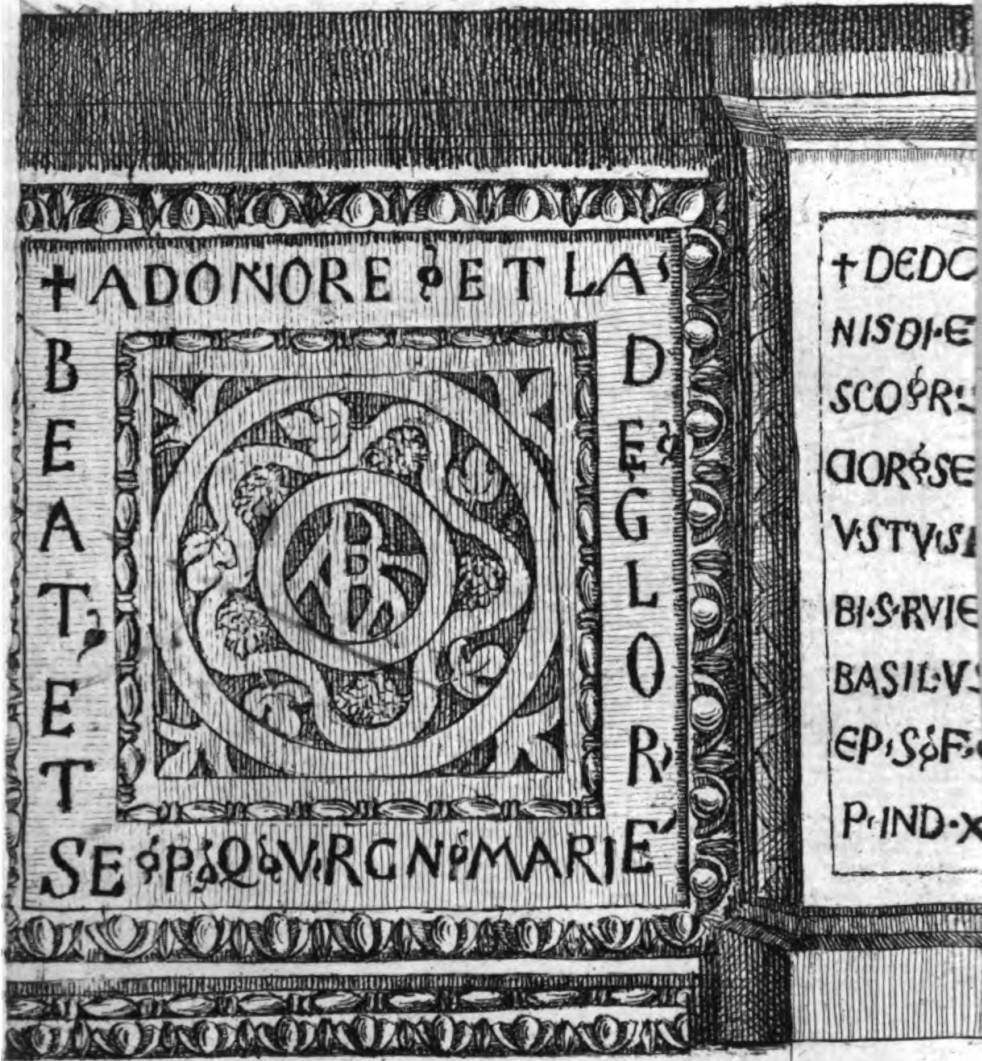 + ADONORE ET LA
DE GLORE
BEAT ET
SE P Q VRGN MARIE
+ DEDO
NISDI·E
SCO R
DOR SE
V·STV·S
BI·S·RVIE
BASIL·V
EP·S F
P·IND·X